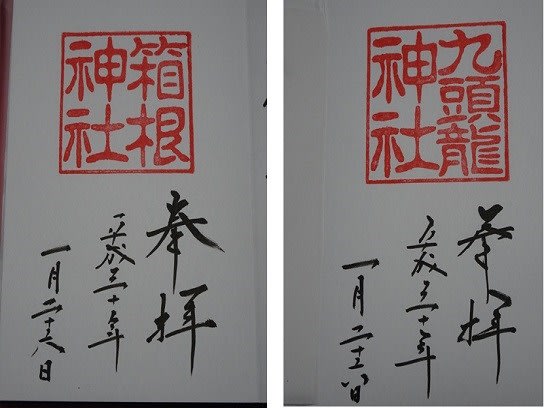 箱根
神社
奉拝
平成三十年
一月二十六日
九頭龍
神社
奉拝
平成三十年
一月二十六日